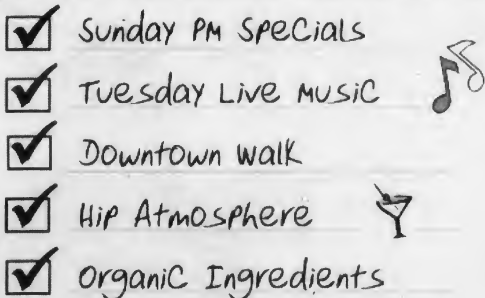 Sunday PM Specials
Tuesday Live Music
Downtown Walk
Hip Atmosphere
Organic Ingredients